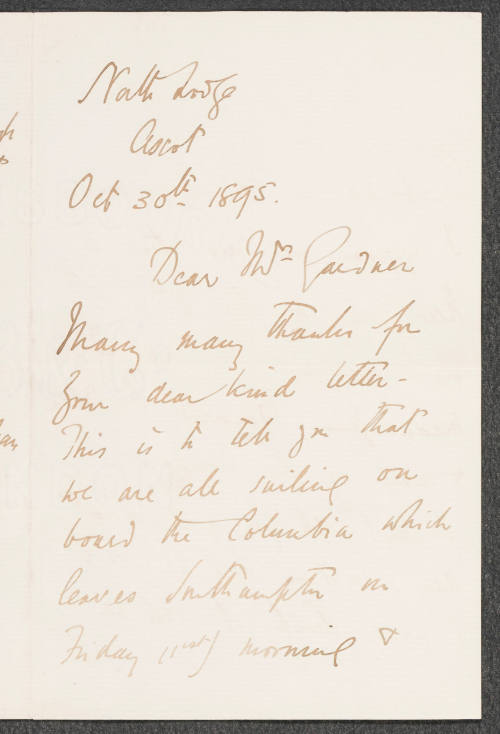 North Lodge
Ascot
Oct 30th 1895.
Dear Mrs Gardner
Many many thanks for
your dear kind letter -
This is to tell you that
we are all sailing on
board the Columbia which
leaves Southampton on
Friday (1st) morning &